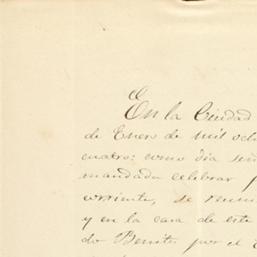 En la Ciudad
de Enero de mil och
cuatro: como dia señ
mandada celebrar p
corriente, se reuni
y en la casa de este
do Benito por el C